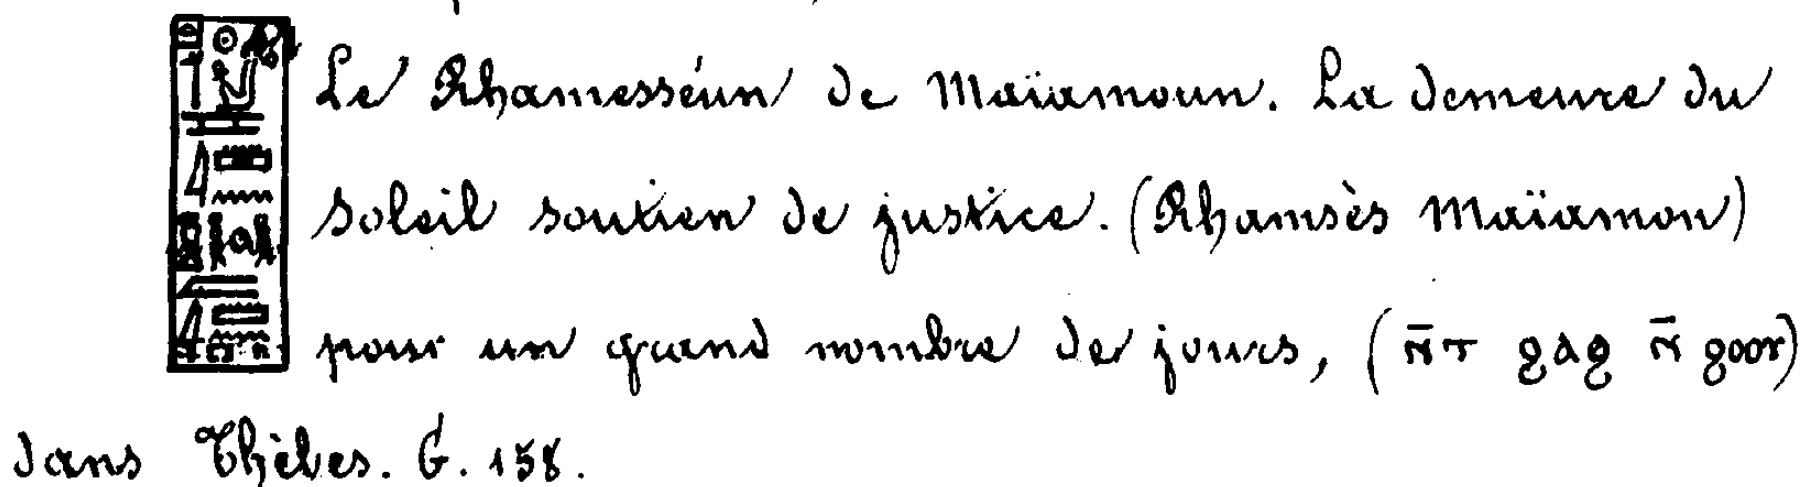 Le Rhamesséun de Maïamoun. La demeure du
soleil soutien de justice. (Rhamsès Maïamon)
pour un grand nombre de jours, (ⲛ̄ⲧ ϩⲁϩ ⲛ̄ ϩⲟⲟⲩ)
dans Thèbes. G. 158.